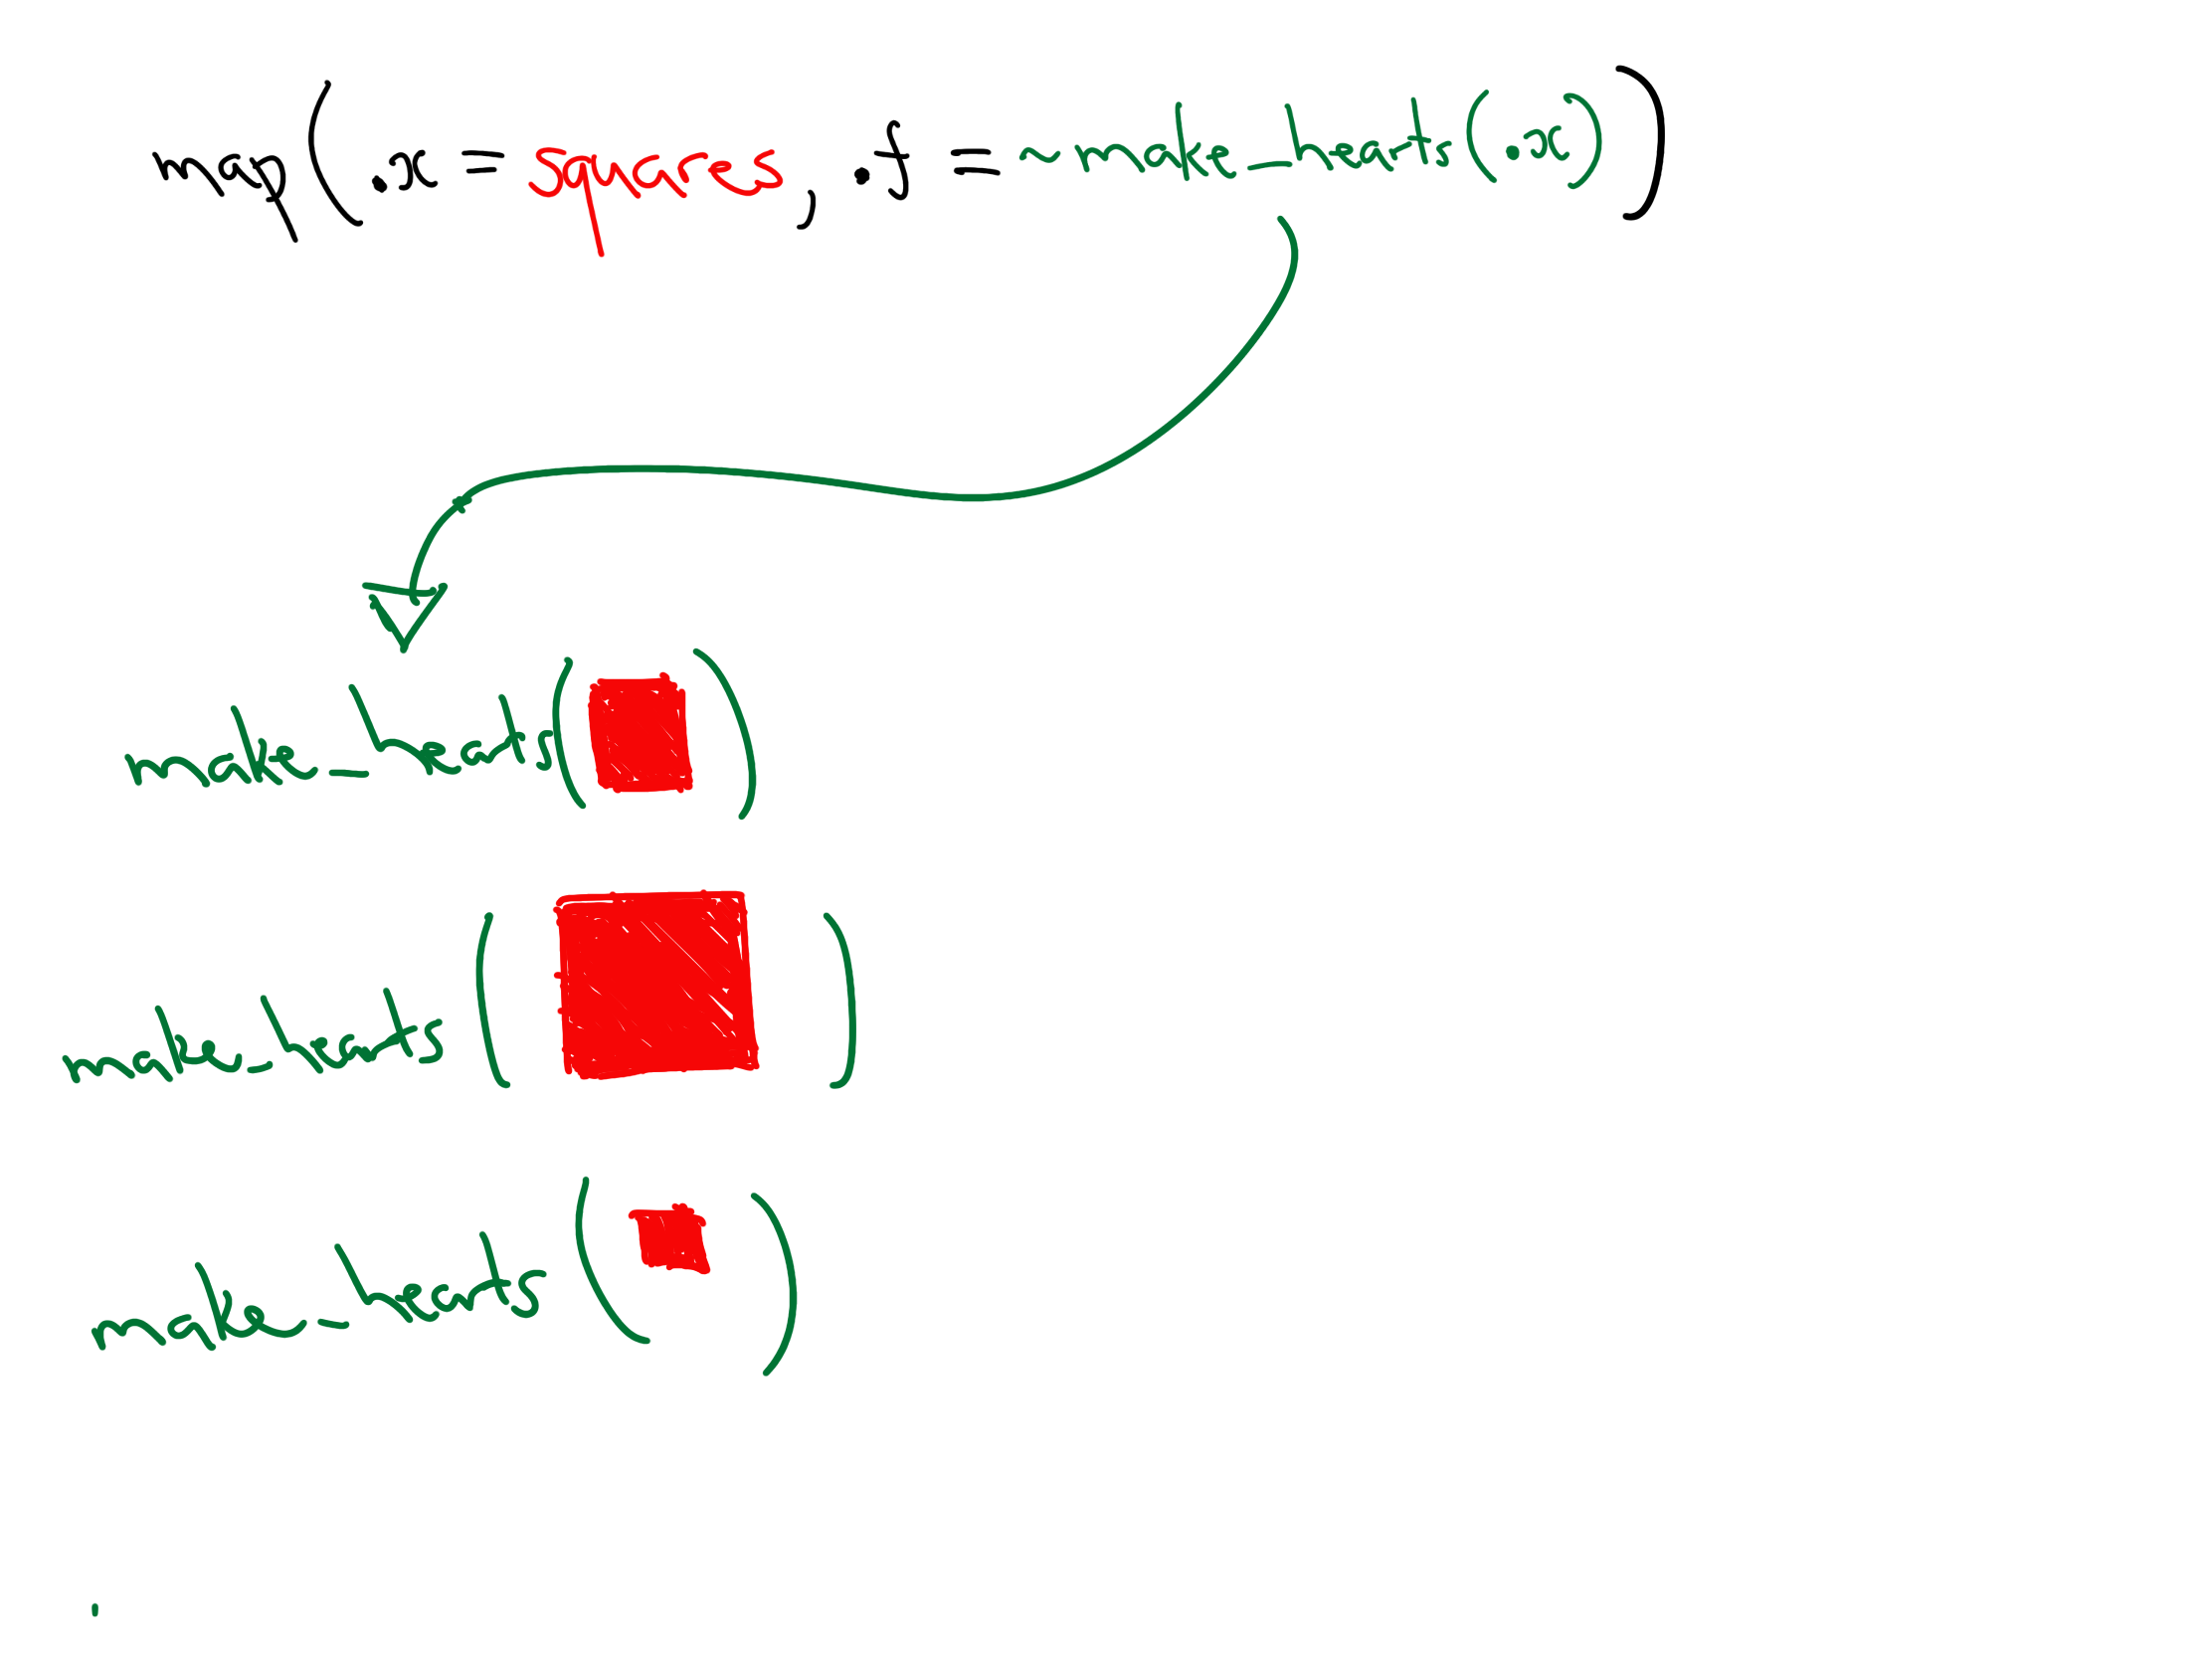 map(.x = squares, .f = ~ make_hearts(.x))
make_hearts( )
make_hearts ( )
make_hearts ( )